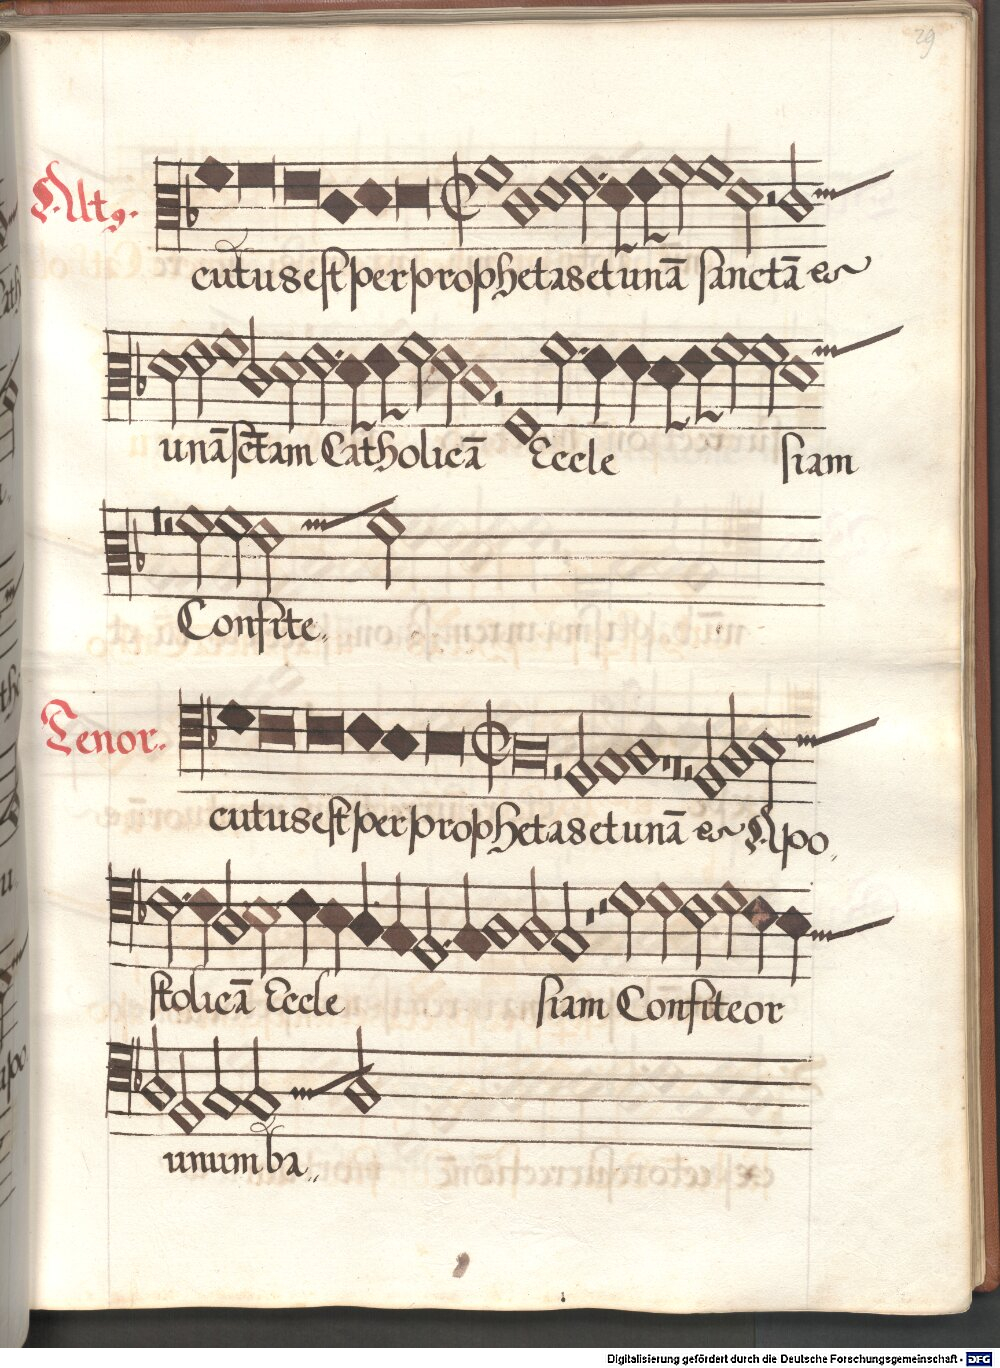 29
Altꝰ.
cutus est per prophetas et unā sanctā &
unā sctam Catholicā Eccle siam
Confite.,
Tenor.
cutus est per prophetas et unā & Apo.,
stolicā Eccle siam Confiteor
unum ba.,
Digitalisierung gefördert durch die Deutsche Forschungsgemeinschaft - DFG